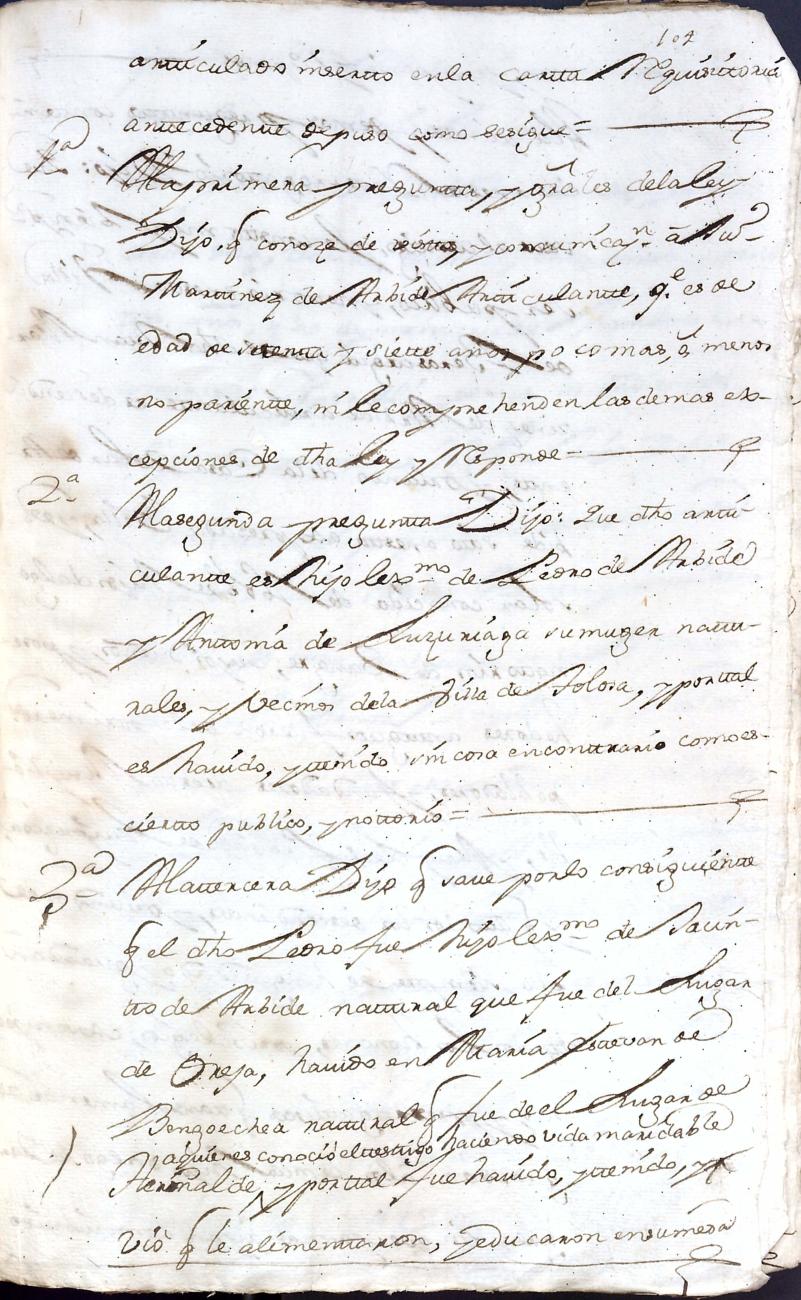 104
articulado inserto enla carta Requisitoria
antecedente depuso como sesigue=
1ª
Alaprimera pregunta, y grâles delaley
Dijo, q conoze de vista, y comunicazn. â Juº
Martinez de Arbide Articulante, q.e es de
edad de setenta y siette años poco mas, ô menos
no pariente, ni lecomprehenden las demas ex-
cepciones, de dha ley y Responde
2ª
Alasegunda pregunta Dijo: Que dho arti-
culante es hijo lexmo de Pedro de Arbide
y Antonia de Luzuriaga su muger natu-
rales, y Vecinos dela Villa de Tolosa, y portal
es havido, ytenido sin cosa encontrario comoes
cierto publico, ynottorio=
3ª
Alatercera Dijo q save porlo consiguiente
q el dho Pedro fue hijo lexmo de Jacin-
to de Arbide natural que fue del Lugar
de Oreja, havido en Maria Estevan de
Bengoechea natural q fue deel Lugar de
aquienes conocio eltestigo haciendo vida maridable
Hernialde, y portal fue havido, ytenido, y
vio q le alimentaron, yeducaron ensumesa